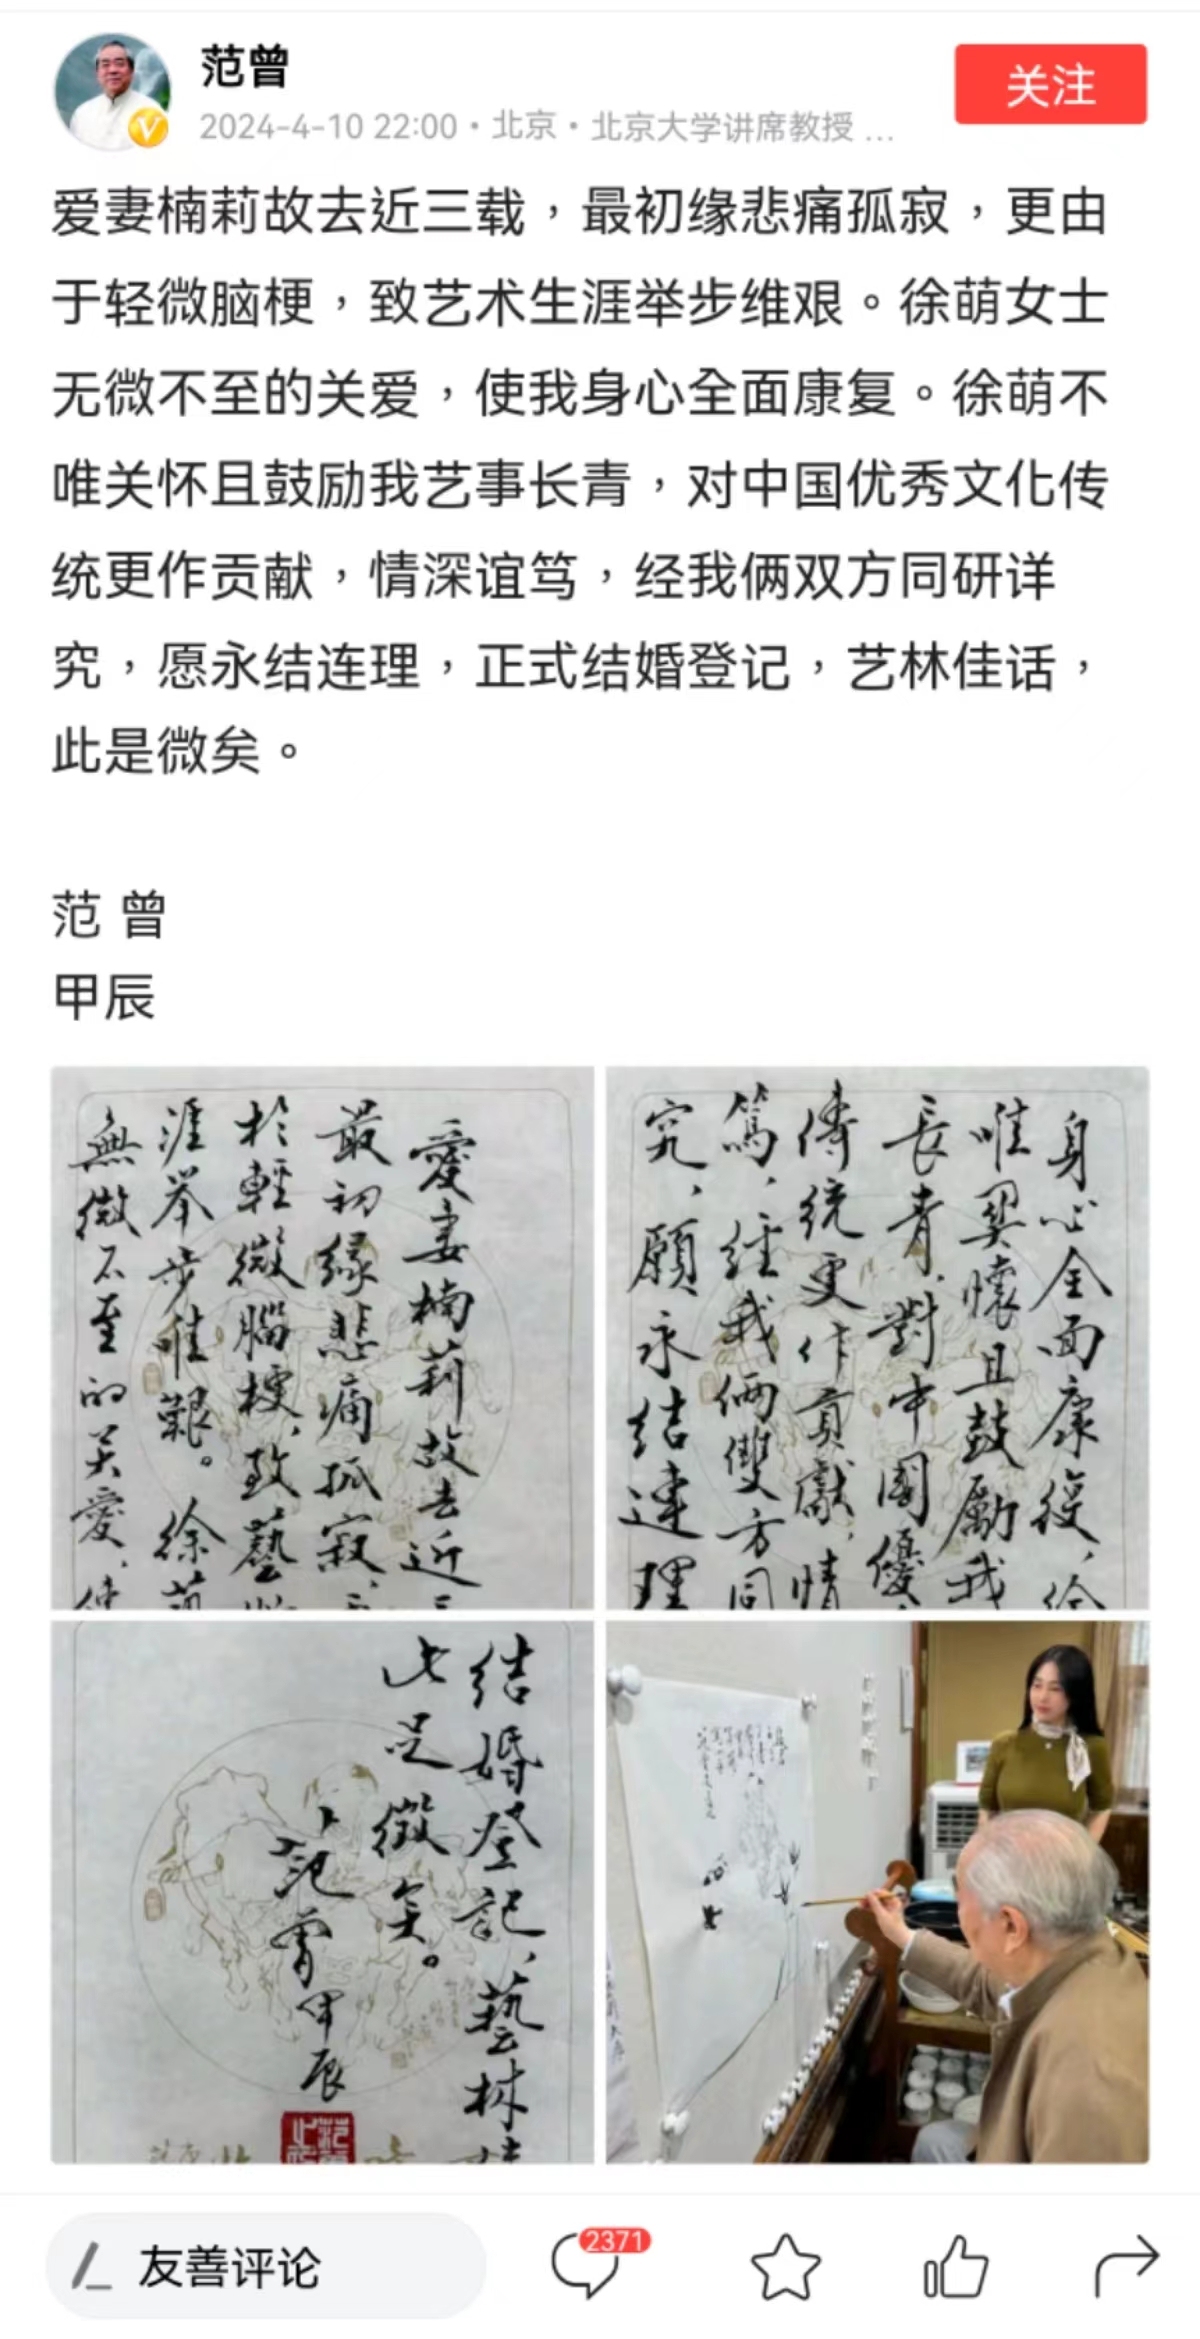 范曾
关注
2024-4-10 22:00・北京・北京大学讲席教授 ...
爱妻楠莉故去近三载，最初缘悲痛孤寂，更由
于轻微脑梗，致艺术生涯举步维艰。徐萌女士
无微不至的关爱，使我身心全面康复。徐萌不
唯关怀且鼓励我艺事长青，对中国优秀文化传
统更作贡献，情深谊笃，经我俩双方同研详
究，愿永结连理，正式结婚登记，艺林佳话，
此是微矣。
范 曾
甲辰
愛妻楠莉故去近三
最初緣悲痛孤寂、
於輕微腦梗、致藝
涯举步唯艱。徐萌
無微不至的关愛、使
身心全面康復、徐
唯関懷且鼓勵我
長青、對中國優
傳統更作貢獻、情
篤、經我倆雙方同
究、願永結連理
結婚登記、藝林
此足徵矣。
范曾甲辰
V
友善评论
2371